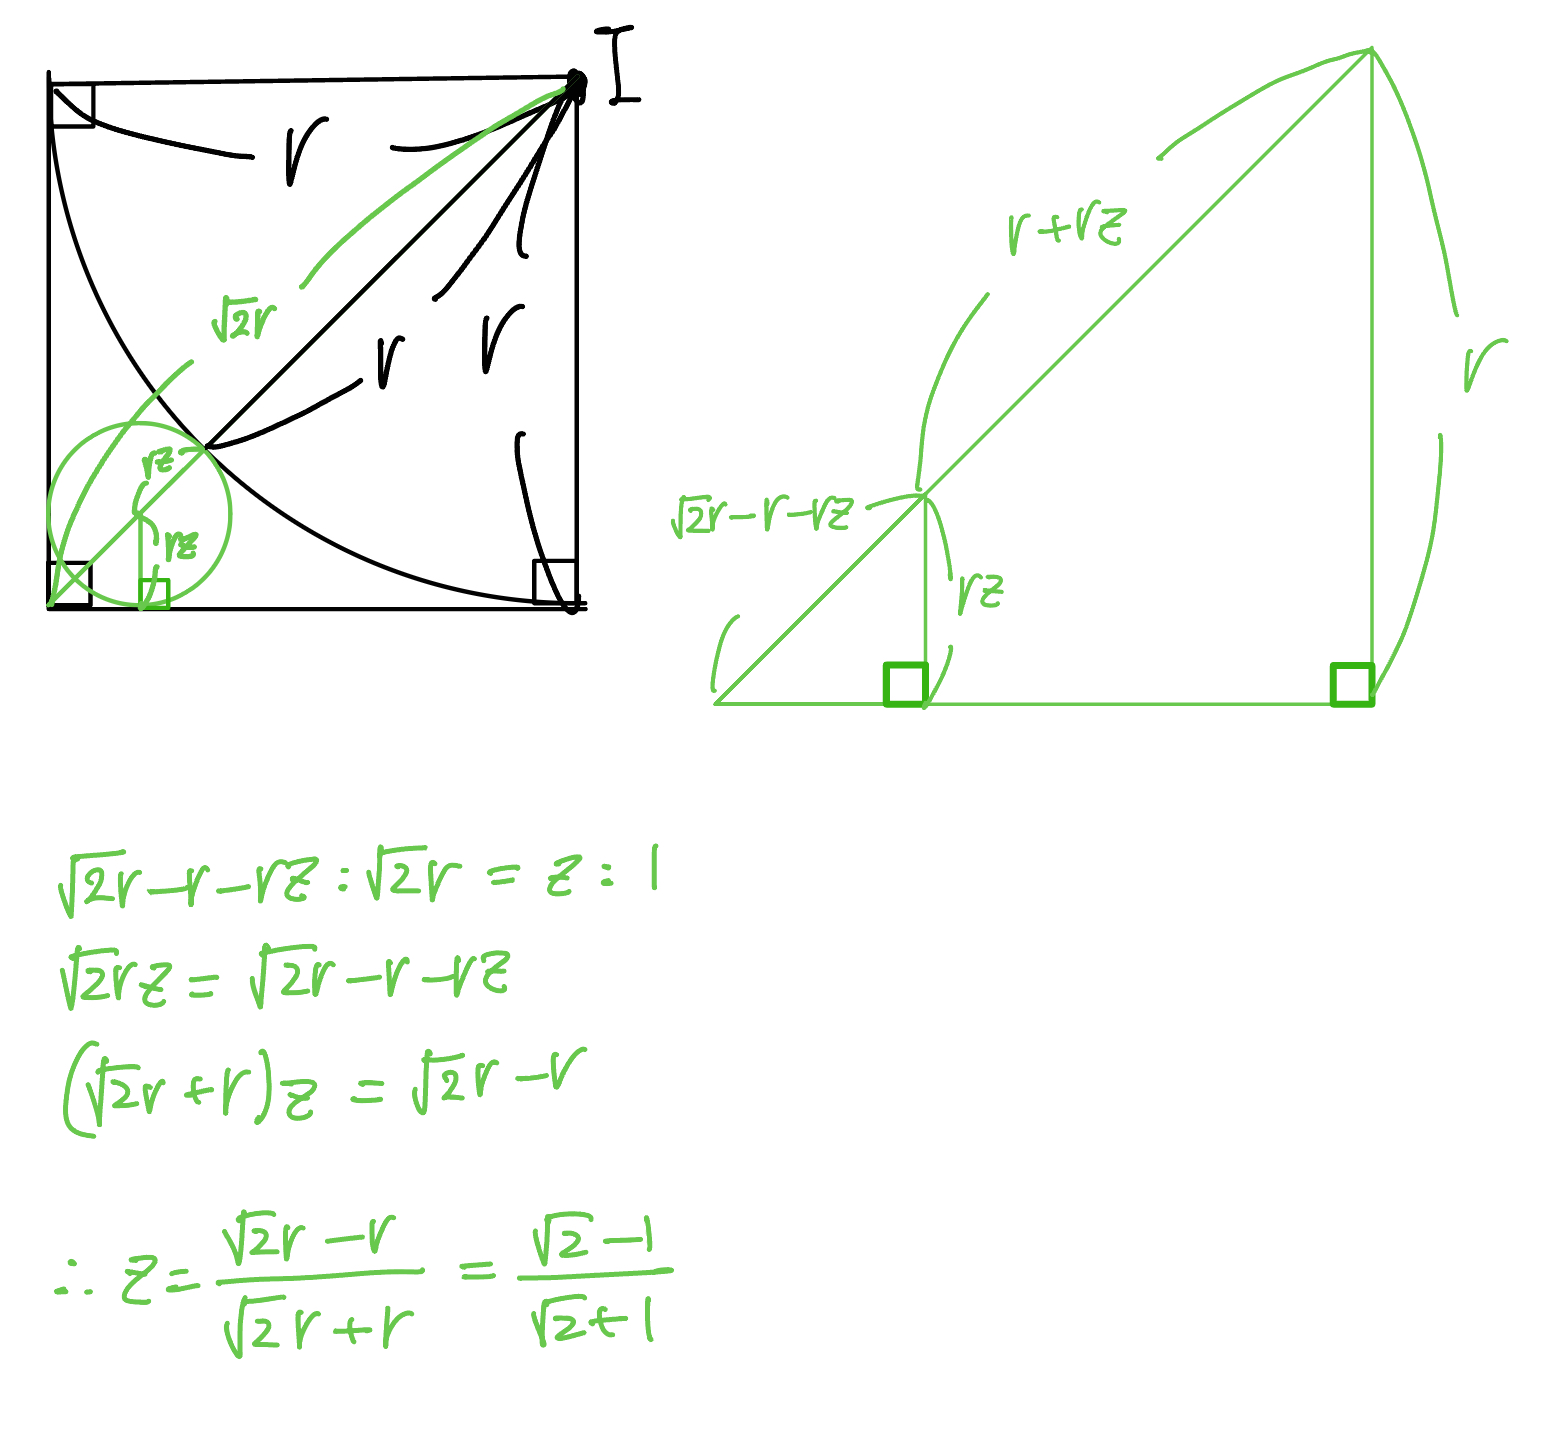 I
r
√2r
r
r
rz
rz
r+rz
r
√2r-r-rz
rz
√2r-r-rz:√2r=z:1
√2rz=√2r-r-rz
(√2r+r)z=√2r-r
∴z=(√2r-r)/(√2r+r)=(√2-1)/(√2+1)